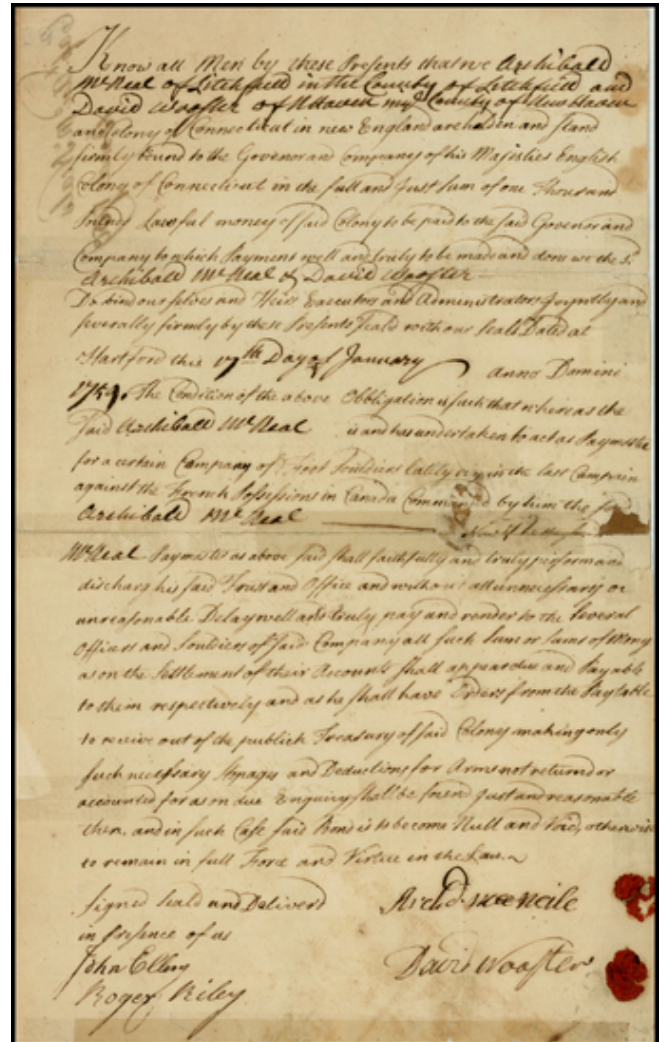 Know all Men by these Presents that we Archibald
McNeal of Litchfield in the County of Litchfield and
David Wooster of NHaven in ye County of New Haven
and Colony of Connecticut in new England are holden and stand
firmly bound to the Govenor and Company of his Majesties English
Colony of Connecticut in the full and Just Sum of one Thousand
Pounds Lawful money of said Colony to be paid to the said Govenor and
Company to which Payment well and truly to be made and done we the sd
Archibald McNeal & David Wooster
Do bind our selves and Heirs Executors and Administrators Joyntly and
severally firmly by these Presents Seald with our Seals Dated at
Hartford this 17th Day of January Anno Domini
1759. The Condition of the above Obbligation is such that whereas the
Said Archibald McNeal is and has undertaken to act as Paymaster
for a certain Company of Foot Souldiers lately in the last Campain
against the French Possessions in Canada by him the sd
Archibald McNeal
Now if
McNeal Paymaster as above said shall faithfully and truly perform and
discharg his said Trust and Office and without all unnecessary or
unreasonable Delay well and truly pay and render to the several
Officers and Souldiers of said Company all such Sum or Sums of Mony
as on the Settlement of their Accounts shall appear due and Payable
to them respectively and as he shall have Orders from the Paytable
to receive out of the publick Treasury of said Colony making only
such necessary Stopages and Deductions for Arms not returnd or
accounted for as on due Enquiry shall be found Just and reasonable
then, and in such Case said Bond is to become Null and Void, otherwise
to remain in full Force and Virtue in the Law.
Signed Seald and Deliverd
in presence of us
John Ellery
Roger Riley
Archd McNeile
David Wooster